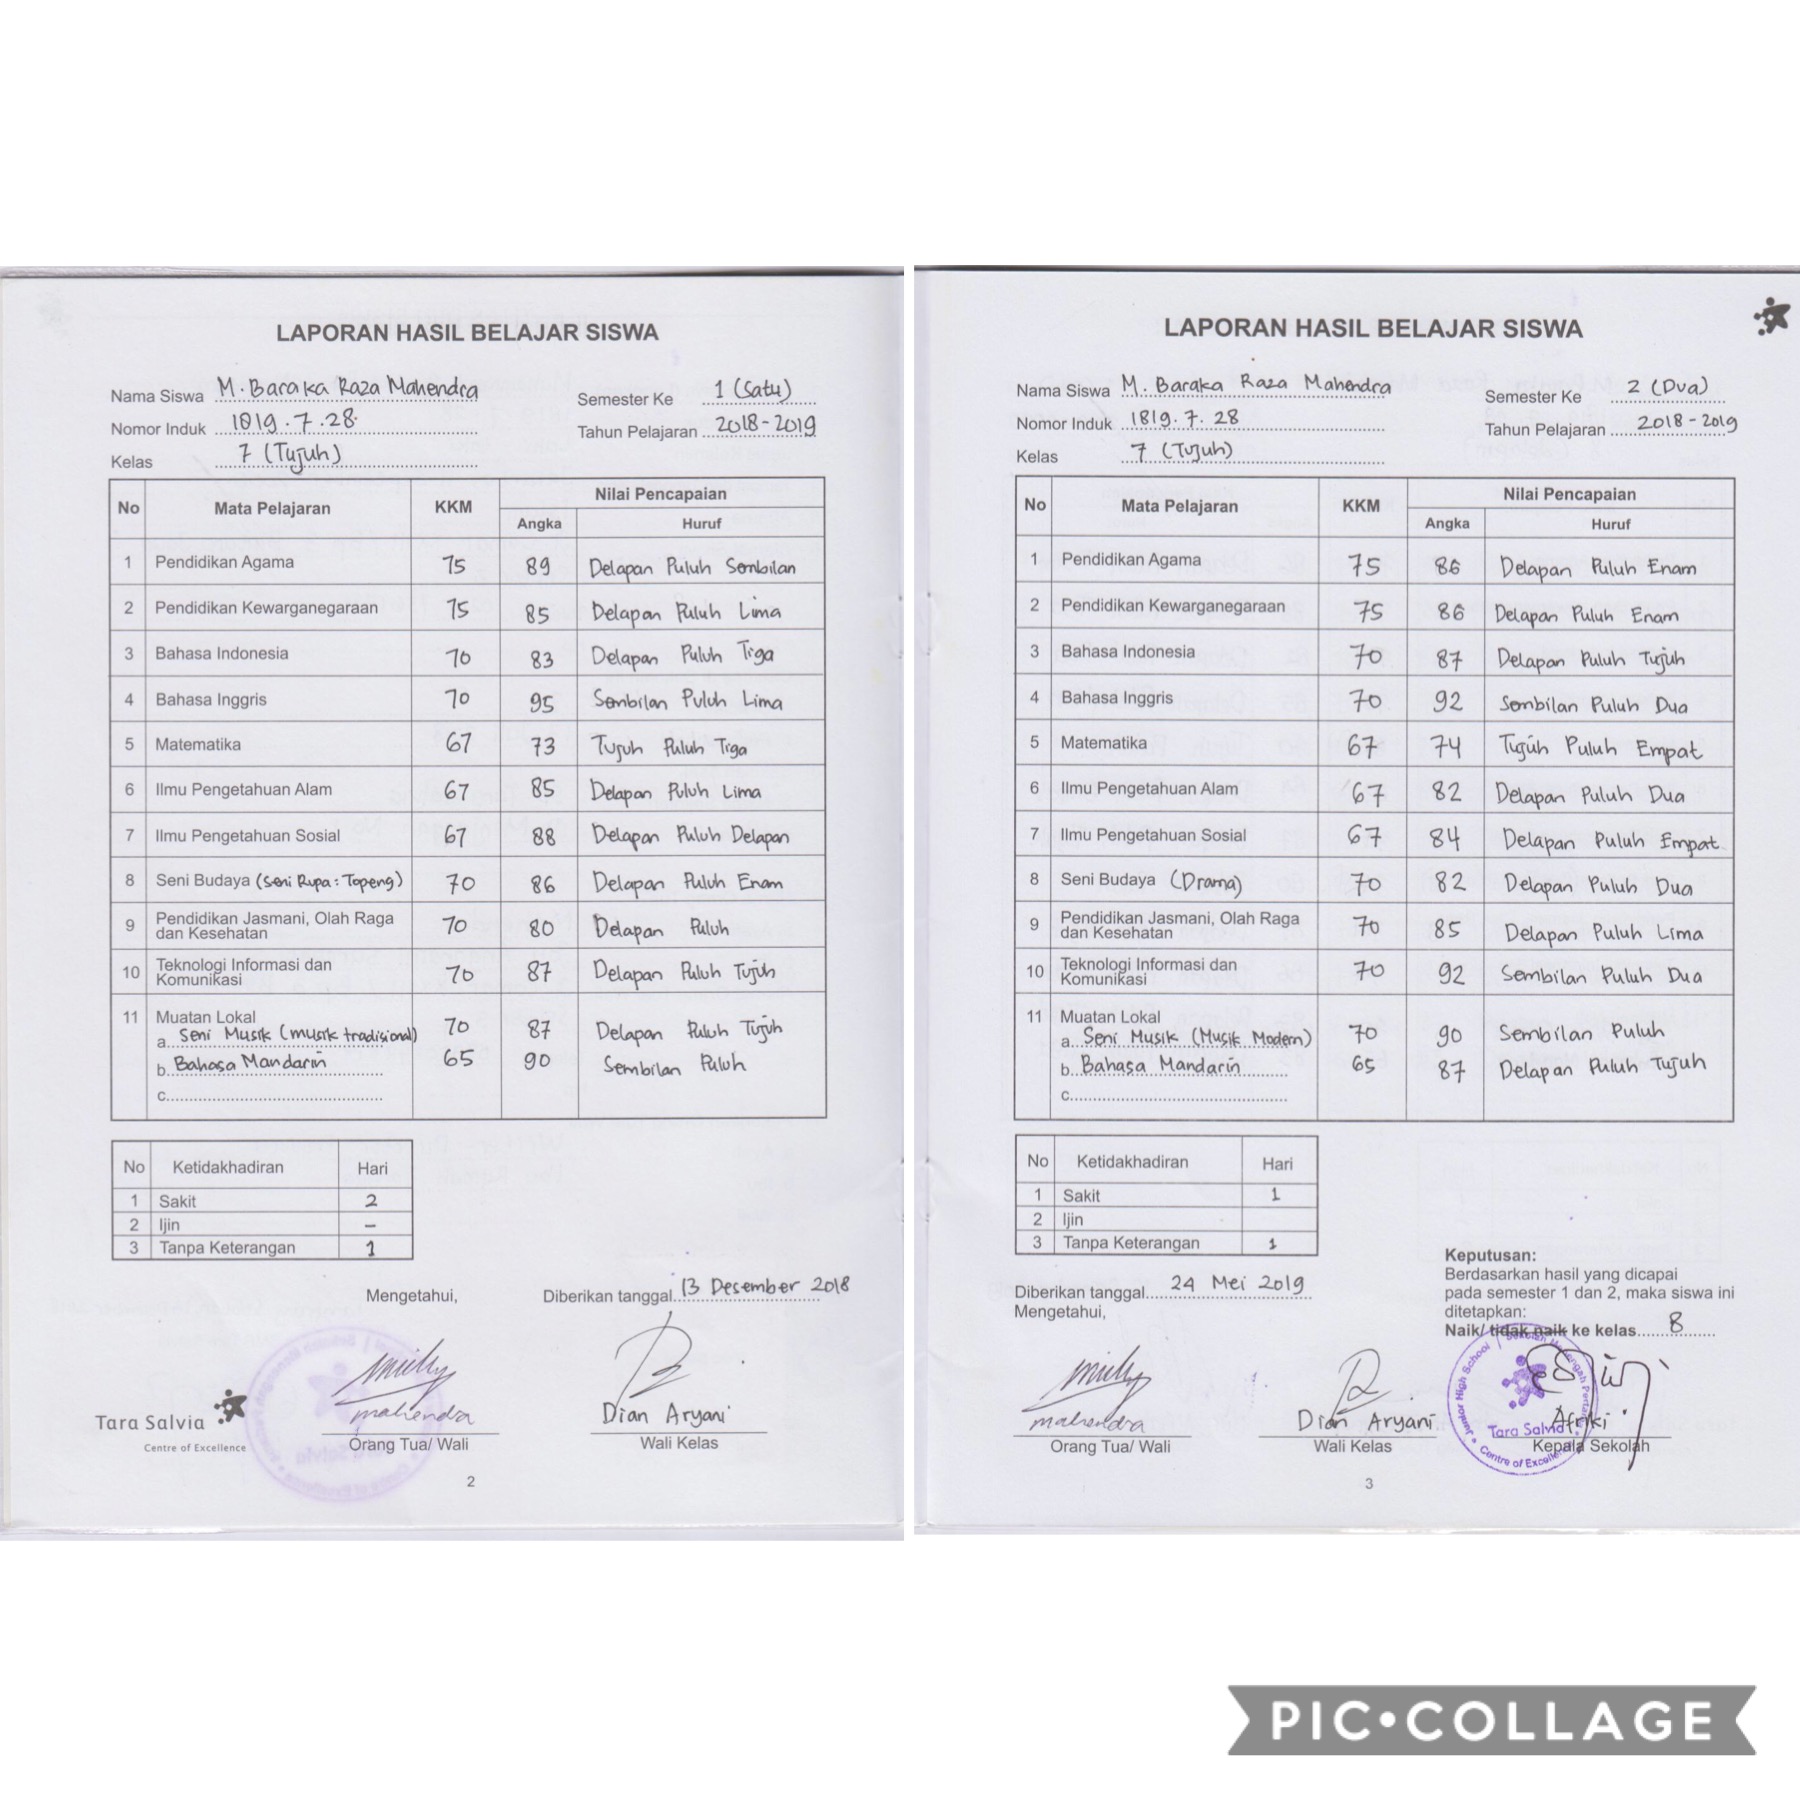 LAPORAN HASIL BELAJAR SISWA
Nama Siswa M. Baraka Raza Mahendra Semester Ke 1 (Satu)
Nomor Induk 1819.7.28 Tahun Pelajaran 2018-2019
Kelas 7 (Tujuh)
No Mata Pelajaran KKM Nilai Pencapaian
Angka Huruf
1 Pendidikan Agama 75 89 Delapan Puluh Sembilan
2 Pendidikan Kewarganegaraan 75 85 Delapan Puluh Lima
3 Bahasa Indonesia 70 83 Delapan Puluh Tiga
4 Bahasa Inggris 70 95 Sembilan Puluh Lima
5 Matematika 67 73 Tujuh Puluh Tiga
6 Ilmu Pengetahuan Alam 67 85 Delapan Puluh Lima
7 Ilmu Pengetahuan Sosial 67 88 Delapan Puluh Delapan
8 Seni Budaya (Seni Rupa : Topeng) 70 86 Delapan Puluh Enam
9 Pendidikan Jasmani, Olah Raga
dan Kesehatan 70 80 Delapan Puluh
10 Teknologi Informasi dan
Komunikasi 70 87 Delapan Puluh Tujuh
11 Muatan Lokal
a. Seni Musik (musik tradisional) 70 87 Delapan Puluh Tujuh
b. Bahasa Mandarin 65 90 Sembilan Puluh
c.
No Ketidakhadiran Hari
1 Sakit 2
2 Ijin –
3 Tanpa Keterangan 1
Mengetahui, Diberikan tanggal 13 Desember 2018
mahendra Dian Aryani
Orang Tua/ Wali Wali Kelas
Tara Salvia
Centre of Excellence
2
LAPORAN HASIL BELAJAR SISWA
Nama Siswa M. Baraka Raza Mahendra Semester Ke 2 (Dua)
Nomor Induk 1819.7.28 Tahun Pelajaran 2018-2019
Kelas 7 (Tujuh)
No Mata Pelajaran KKM Nilai Pencapaian
Angka Huruf
1 Pendidikan Agama 75 86 Delapan Puluh Enam
2 Pendidikan Kewarganegaraan 75 86 Delapan Puluh Enam
3 Bahasa Indonesia 70 87 Delapan Puluh Tujuh
4 Bahasa Inggris 70 92 Sembilan Puluh Dua
5 Matematika 67 74 Tujuh Puluh Empat
6 Ilmu Pengetahuan Alam 67 82 Delapan Puluh Dua
7 Ilmu Pengetahuan Sosial 67 84 Delapan Puluh Empat
8 Seni Budaya (Drama) 70 82 Delapan Puluh Dua
9 Pendidikan Jasmani, Olah Raga
dan Kesehatan 70 85 Delapan Puluh Lima
10 Teknologi Informasi dan
Komunikasi 70 92 Sembilan Puluh Dua
11 Muatan Lokal
a. Seni Musik (Musik Modern) 70 90 Sembilan Puluh
b. Bahasa Mandarin 65 87 Delapan Puluh Tujuh
c.
No Ketidakhadiran Hari
1 Sakit 1
2 Ijin
3 Tanpa Keterangan 1
Diberikan tanggal 24 Mei 2019
Mengetahui,
Keputusan:
Berdasarkan hasil yang dicapai
pada semester 1 dan 2, maka siswa ini
ditetapkan:
Naik/ tidak naik ke kelas 8
mahendra Dian Aryani Afriki
Orang Tua/ Wali Wali Kelas Kepala Sekolah
Junior High School | Sekolah Menengah Pertama
Tara Salvia
Centre of Excellence
3
PIC•COLLAGE